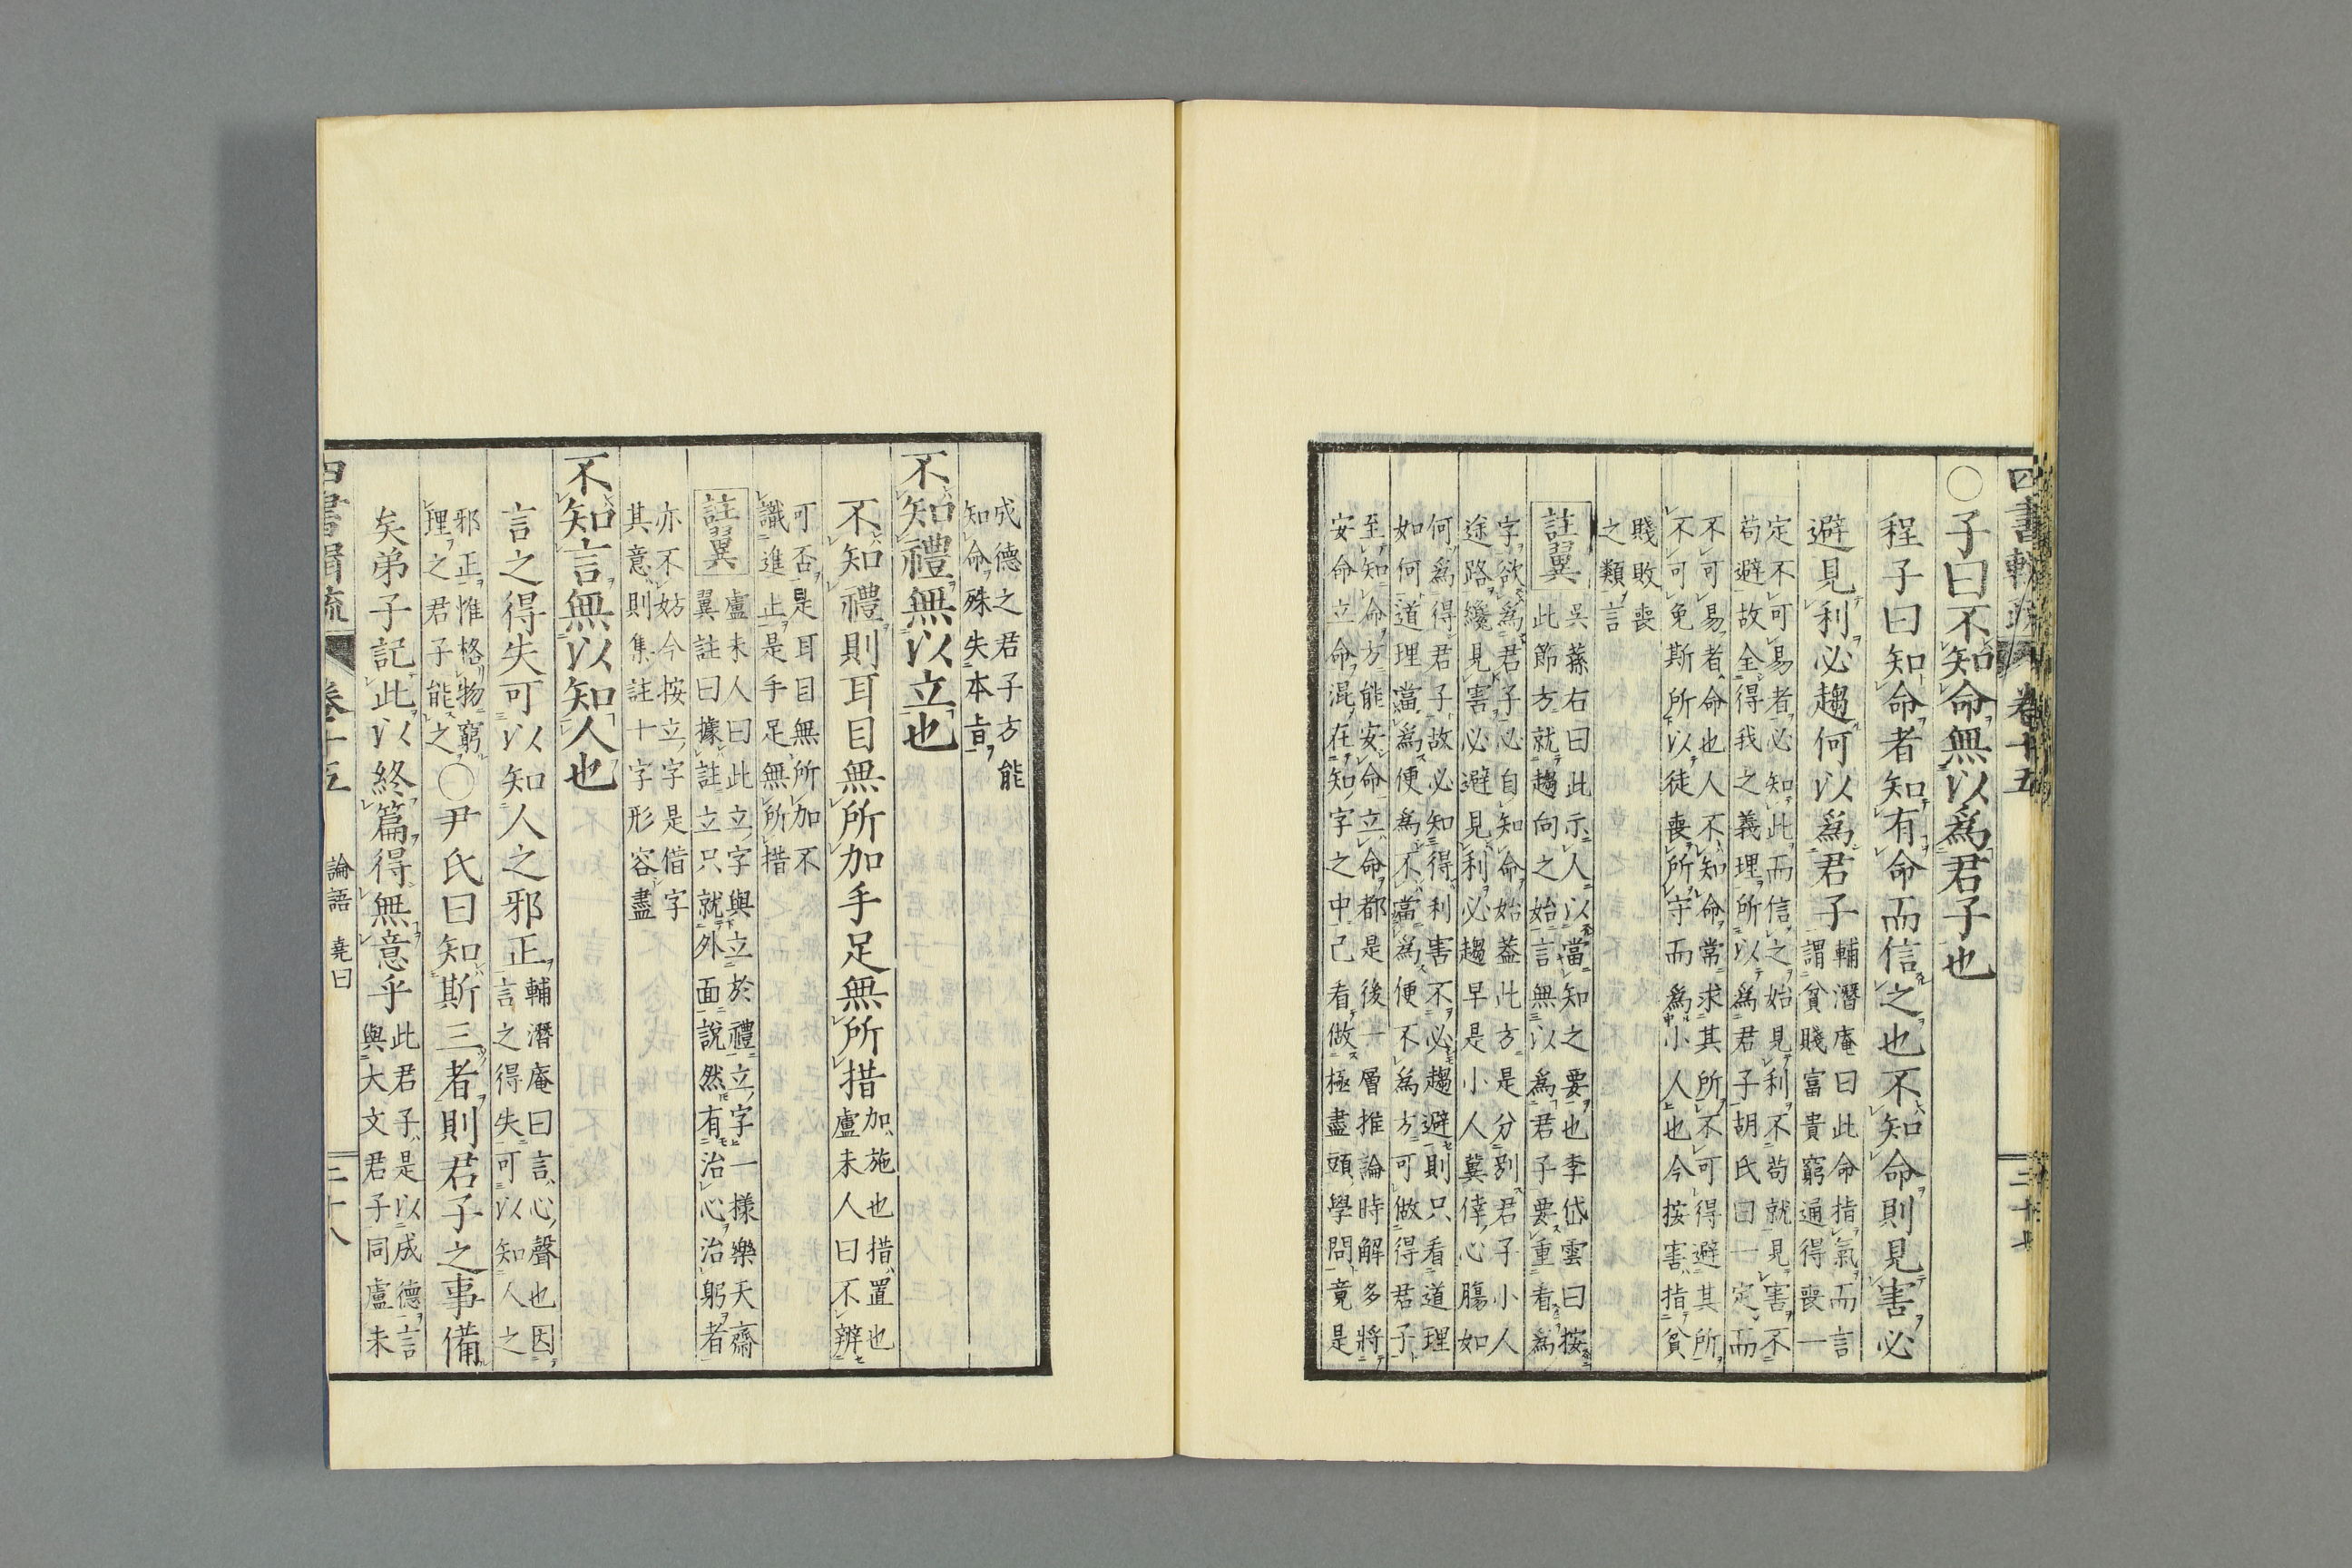 四書輯疏 卷十五 二十七
○子曰不知命無以爲君子也
程子曰知命者知有命而信之也不知命則見害必
避見利必趨何以爲君子
輔潛庵曰此命指氣而言
謂貧賤富貴窮通得喪一
定不可易者必知此而信之始見利不苟就見害不
苟避故全得我之義理所以爲君子胡氏曰一定而
不可易者命也人不知命常求其所不可得避其所
不可免斯所以徒喪所守而爲小人也今按害指貧
賤敗喪
之類言
註翼
吳蓀右曰此示人以當知之要也李岱雲曰按
此節方就趨向之始言無以爲君子要重看爲
字欲爲君子必自知命始蓋此方是分別君子小人
途路纔見害必避見利必趨早是小人冀倖心腸如
何爲得君子故必知得利害不必趨避則只看道理
如何道理當爲便爲不當爲便不爲方可做得君子
至知命方能安命立命都是後一層推論時解多將
安命立命混在知字之中已看做極盡頭學問竟是
成德之君子方能
知命殊失本旨
不知禮無以立也
不知禮則耳目無所加手足無所措
加施也措置也
盧未人曰不辨
可否是耳目無所加不
識進止是手足無所措
註翼
盧未人曰此立字與立於禮立字一樣樂天齋
翼註曰據註立只就外面說然有治心治躬者
亦不妨今按立字是借字
其意則集註十字形容盡
不知言無以知人也
言之得失可以知人之邪正
輔潛庵曰言心聲也因
言之得失可以知人之
邪正惟格物窮
理之君子能之
○尹氏曰知斯三者則君子之事備
矣弟子記此以終篇得無意乎
此君子是以成德言
與大文君子同盧未
四書輯疏 卷十五 論語 堯曰 二十八